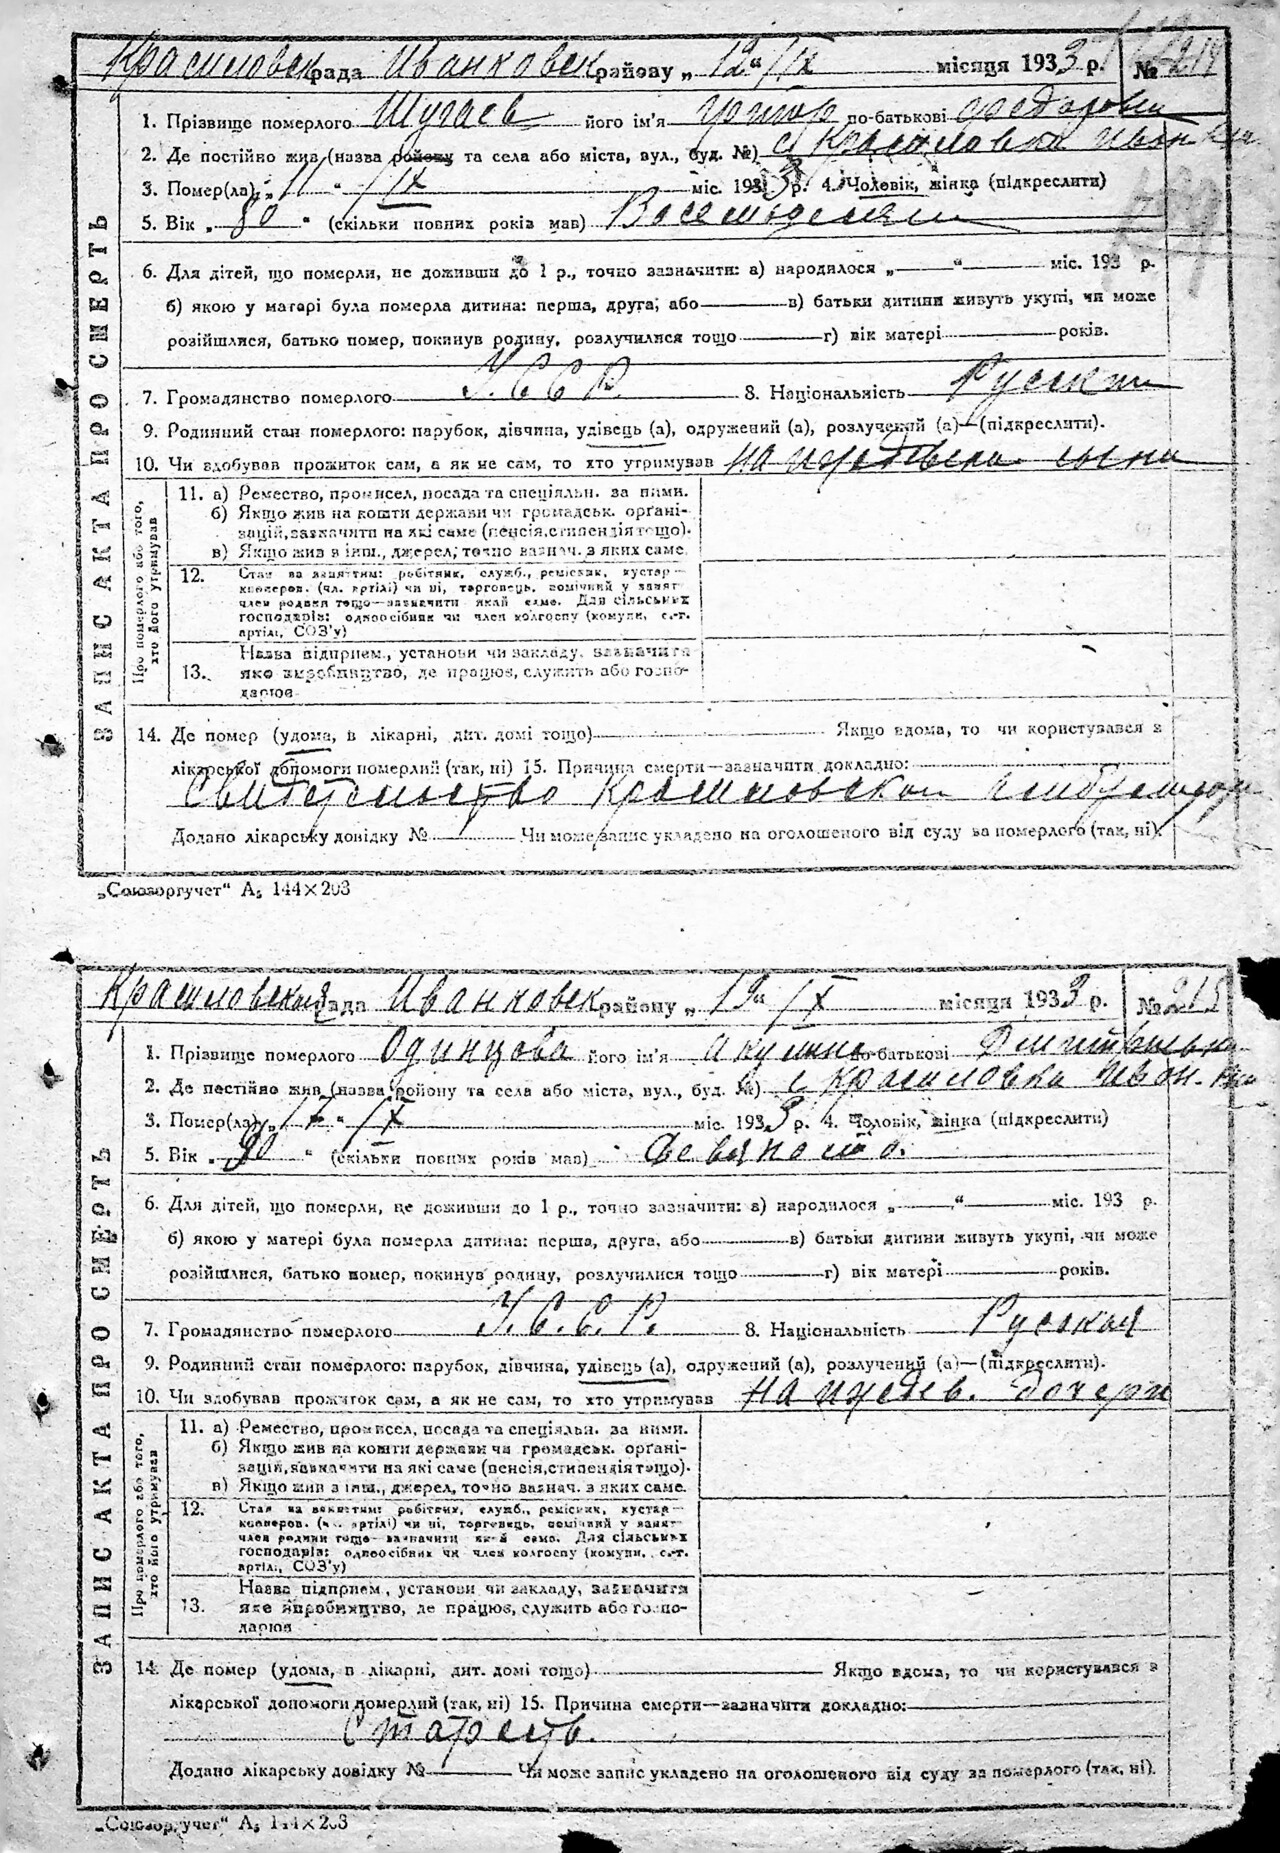 Красиловск рада Иванковск району „ 12 “ IX місяця 1933 р. № 214
1. Прізвище померлого Шугаев його ім'я Григор по-батькові Федорови
2. Де постійно жив (назва району та села або міста, вул., буд. №) с Красиловка Иванк
3. Помер(ла) „ 11 “ IX міс. 1933 р. 4. Чоловік, жінка (підкреслити)
5. Вік „ 80 “ (скільки повних років мав) Восемьдесят
6. Для дітей, що померли, не доживши до 1 р., точно зазначити: а) народилося „ “ міс. 193 р.
б) якою у матері була померла дитина: перша, друга, або в) батьки дитини живуть укупі, чи може
розійшлися, батько помер, покинув родину, розлучилися тощо г) вік матері років.
7. Громадянство померлого У.С.С.Р. 8. Національність Руский
9. Родинний стан померлого: парубок, дівчина, удівець (а), одружений (а), розлучений (а)—(підкреслити).
10. Чи здобував прожиток сам, а як не сам, то хто утримував на иждевен сына
ЗАПИС АКТА ПРО СМЕРТЬ
Про померлого або того,
хто його утримував
11. а) Ремество, промисел, посада та спеціяльн. за ними.
б) Якщо жив на кошти держави чи громадськ. орґані-
зацій, зазначити на які саме (пенсія, стипендія тощо).
в) Якщо жив з інш., джерел, точно зазнач. з яких саме.
12. Стан за заняттям: робітник, служб., ремісник, кустар—
кооперов. (чл. артілі) чи ні, торговець, помічний у занят-
член родини тощо—зазначити який саме. Для сільських
господарів: одноосібник чи член колгоспу (комуни, с.-г.
артілі, СОЗ'у)
Назва підприєм., установи чи закладу, зазначити
13. яке виробництво, де працює, служить або госпо-
дарює
14. Де помер (удома, в лікарні, дит. домі тощо) Якщо вдома, то чи користувався з
лікарської допомоги померлий (так, ні) 15. Причина смерти—зазначити докладно:
Свитетельство Красиловской
Додано лікарську довідку № Чи може запис укладено на оголошеного від суду за померлого (так, ні).
„Союзоргучет“ А₅ 144×203
Красиловская рада Иванковск району „ 13 “ IX місяця 1933 р. № 215
1. Прізвище померлого Одинцова його ім'я Акулина по-батькові Дмитрівна
2. Де постійно жив (назва району та села або міста, вул., буд. №) с Красиловка Иван.
3. Помер(ла) „ “ IX міс. 1933 р. 4. Чоловік, жінка (підкреслити)
5. Вік „ 90 “ (скільки повних років мав) Девяносто.
6. Для дітей, що померли, не доживши до 1 р., точно зазначити: а) народилося „ “ міс. 193 р.
б) якою у матері була померла дитина: перша, друга, або в) батьки дитини живуть укупі, чи може
розійшлися, батько помер, покинув родину, розлучилися тощо г) вік матері років.
7. Громадянство померлого У.С.С.Р. 8. Національність Русская
9. Родинний стан померлого: парубок, дівчина, удівець (а), одружений (а), розлучений (а)—(підкреслити).
10. Чи здобував прожиток сам, а як не сам, то хто утримував на иждев. дочери
ЗАПИС АКТА ПРО СМЕРТЬ
Про померлого або того,
хто його утримував
11. а) Ремество, промисел, посада та спеціяльн. за ними.
б) Якщо жив на кошти держави чи громадськ. орґані-
зацій, зазначити на які саме (пенсія, стипендія тощо).
в) Якщо жив з інш., джерел, точно зазнач. з яких саме.
12. Стан за заняттям: робітник, служб., ремісник, кустар—
кооперов. (чл. артілі) чи ні, торговець, помічний у занят-
член родини тощо—зазначити який саме. Для сільських
господарів: одноосібник чи член колгоспу (комуни, с.-г.
артілі, СОЗ'у)
Назва підприєм., установи чи закладу, зазначити
13. яке виробництво, де працює, служить або госпо-
дарює
14. Де помер (удома, в лікарні, дит. домі тощо) Якщо вдома, то чи користувався з
лікарської допомоги померлий (так, ні) 15. Причина смерти—зазначити докладно:
Старость.
Додано лікарську довідку № Чи може запис укладено на оголошеного від суду за померлого (так, ні).
„Союзоргучет“ А₅ 144×203